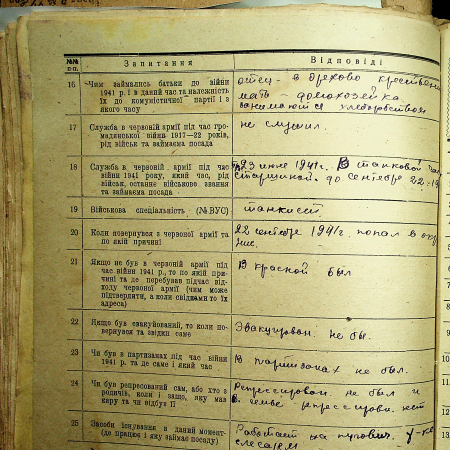 №№ п-п.
Запитання
Відповіді
16
Чим займались батьки до війни
1941 р. і в даний час та належність
їх до комуністичної партії і з
якого часу
отец - в Орехово крестьян
мать - домохозяйка
занимаются хлеборобством
17
Служба в червоній армії під час гро-
мадянської війна 1917—22 років,
рід військ та займаєма посада
не служил.
18
Служба в червоній армії під час
війни 1941 року, який час, рід
військ, останнє військове звання
та займаєма посада
23 июне 1941г. В танковой
старшиной. до сентебре 22
19
Військова спеціальність (№ ВУС)
танкист
20
Коли повернувся з червоної армії та
по якій причині
22 сентебре 1941г. попал в окру
21
Якщо не був в червоній армії під
час війни 1941 р., то по якій при-
чині та де перебував підчас від-
ходу червоної армії (чим може
підтвердити, а коли свідками то їх
адреса)
В красной был
22
Якщо був евакуйований, то коли по-
вернувся та звідки саме
Эвакуирован. не бы.
23
Чи був в партизанах під час війни
1941 р. та де саме і який час
В партизанах не был.
24
Чи був репресований сам, або хто з
родичів, коли і защо, яку мав
кару та чи відбув її
Репрессирован. не был и
В семье репрессирован. нет
25
Засоби існування в даний момент-
(де працює і яку займає посаду)
Работает на
слесарем
9
10
11
12
13